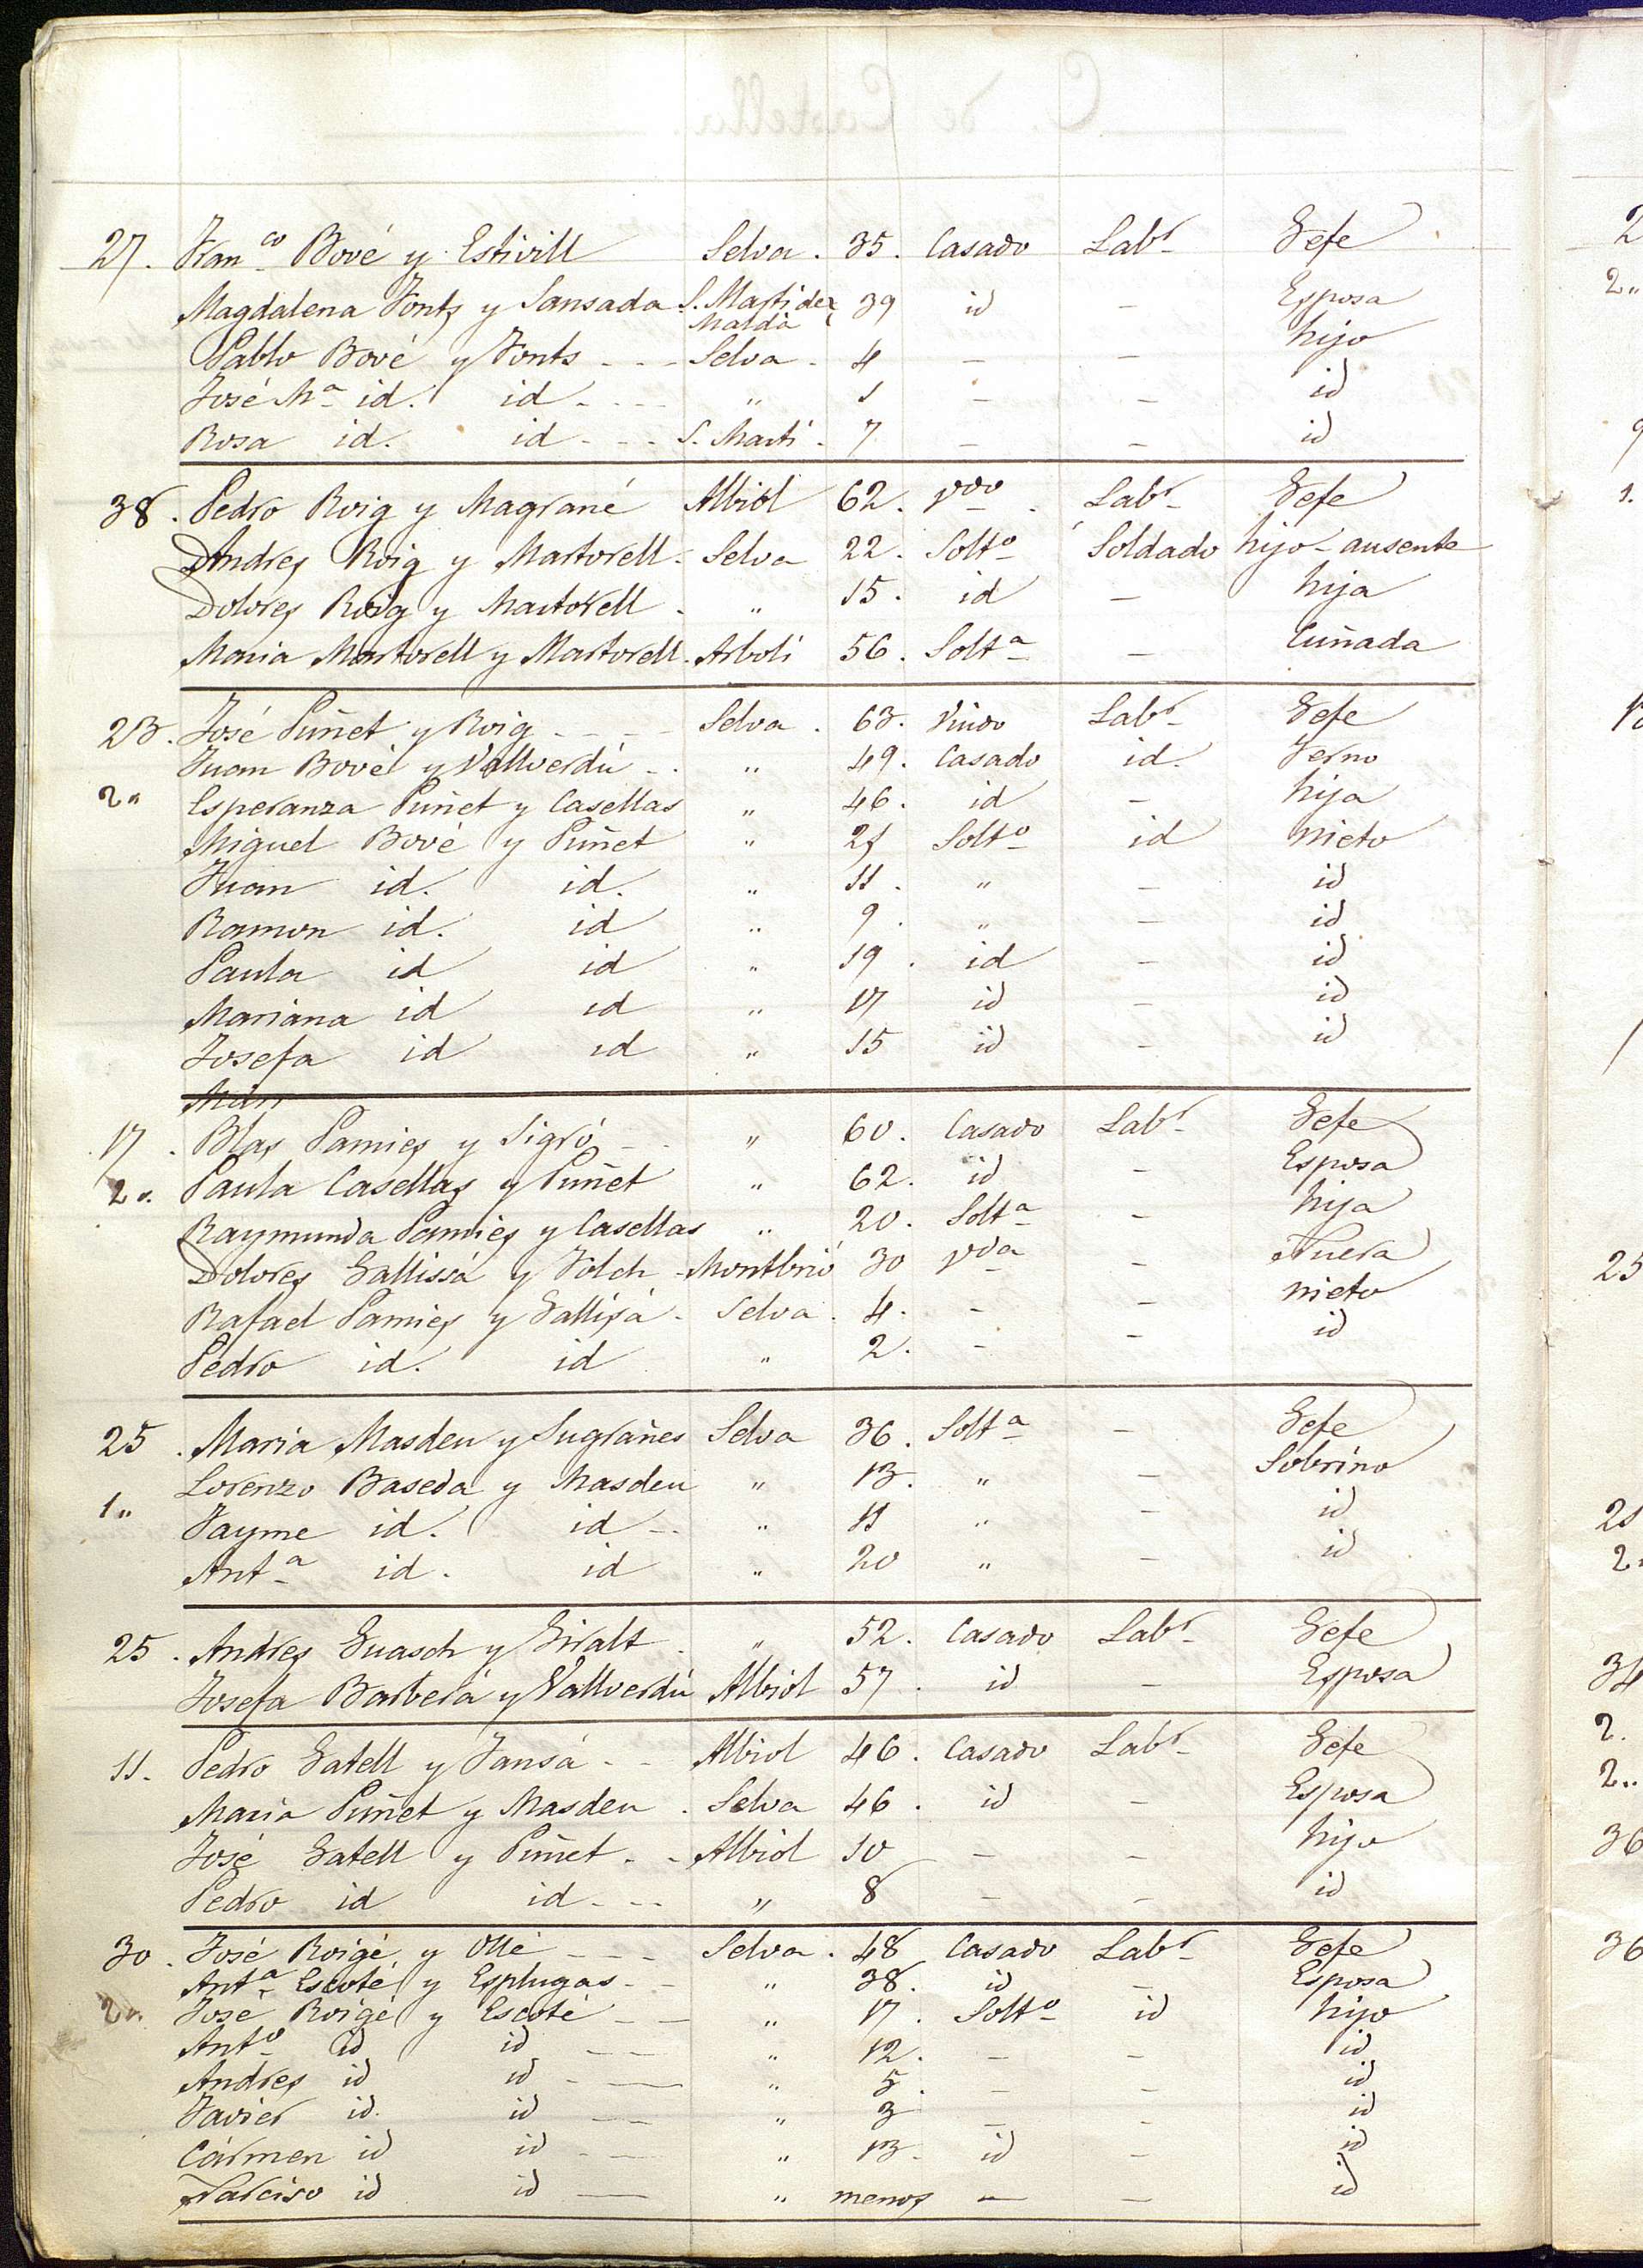 27. Fran.co Bové y Estivill Selva. 35. Casado Labr Gefe
Magdalena Fonts y Sansada S. Marti de Maldà 39 id — Esposa
Pablo Bové y Fonts - - - Selva - 4 — — hijo
José Ma id. id - - - " 1 — — id
Rosa id. id - - - S. Marti - 7 — — id
38. Pedro Roig y Magrané Albiol 62. Vdo. Labr Gefe
Andres Roig y Martorell - Selva 22. Solto Soldado hijo - ausente
Dolores Roig y Martorell - " 15. id — hija
Maria Martorell y Martorell - Arboli 56. Solta — Cuñada
23. José Puñet y Roig - - - - Selva. 63. Viudo Labr Gefe
Juan Bové y Vallverdú - . " 49. Casado id. Yerno
2" Esperanza Puñet y Casellas " 46. id — hija
Miguel Bové y Puñet " 21 Solto id nieto
Juan id. id. " 11. " — id
Ramon id. id " 9. " — id
Paula id id " 19. id — id
Mariana id id " 17 id — id
Josefa id id " 15 id — id
17. Blas Pamies y Sigró - - " 60. Casado Labr Gefe
2". Paula Casellas y Puñet " 62. id — Esposa
Raymunda Pamies y Casellas " 20. Solta — hija
Dolores Gallissá y Folch - Montbrió 30 Vda — Nuera
Rafael Pamies y Gallisá - Selva. 4. — — nieto
Pedro id. id " 2. — — id
25. Maria Masdeu y Sugrañes Selva 36. Solta — Gefe
Lorenzo Baseda y Masdeu " 13. " — Sobrino
1" Jayme id. id - . " 11 " — id
Anta id. id " 20 " — id
25. Andres Guasch y Giralt - " 52. Casado Labr Gefe
Josefa Barberá y Vallverdú Albiol 57. id — Esposa
11. Pedro Gatell y Jansá - - Albiol 46. Casado Labr Gefe
Maria Puñet y Masdeu. Selva 46. id — Esposa
José Gatell y Puñet - - Albiol 10 — — hijo
Pedro id id - - - " 8 — — id
30. José Roigé y Ollé - - - Selva. 48 Casado Labr Gefe
Anta Escoté y Esplugas - - " 38. id — Esposa
2". José Roigé y Escoté - - " 17. Solto id hijo
Anto id id - - " 12. — — id
Andres id id - - " 5. — — id
Javier id. id - - " 3 — — id
Cármen id id - - " 13. id — id
Narciso id id — " menos — — id